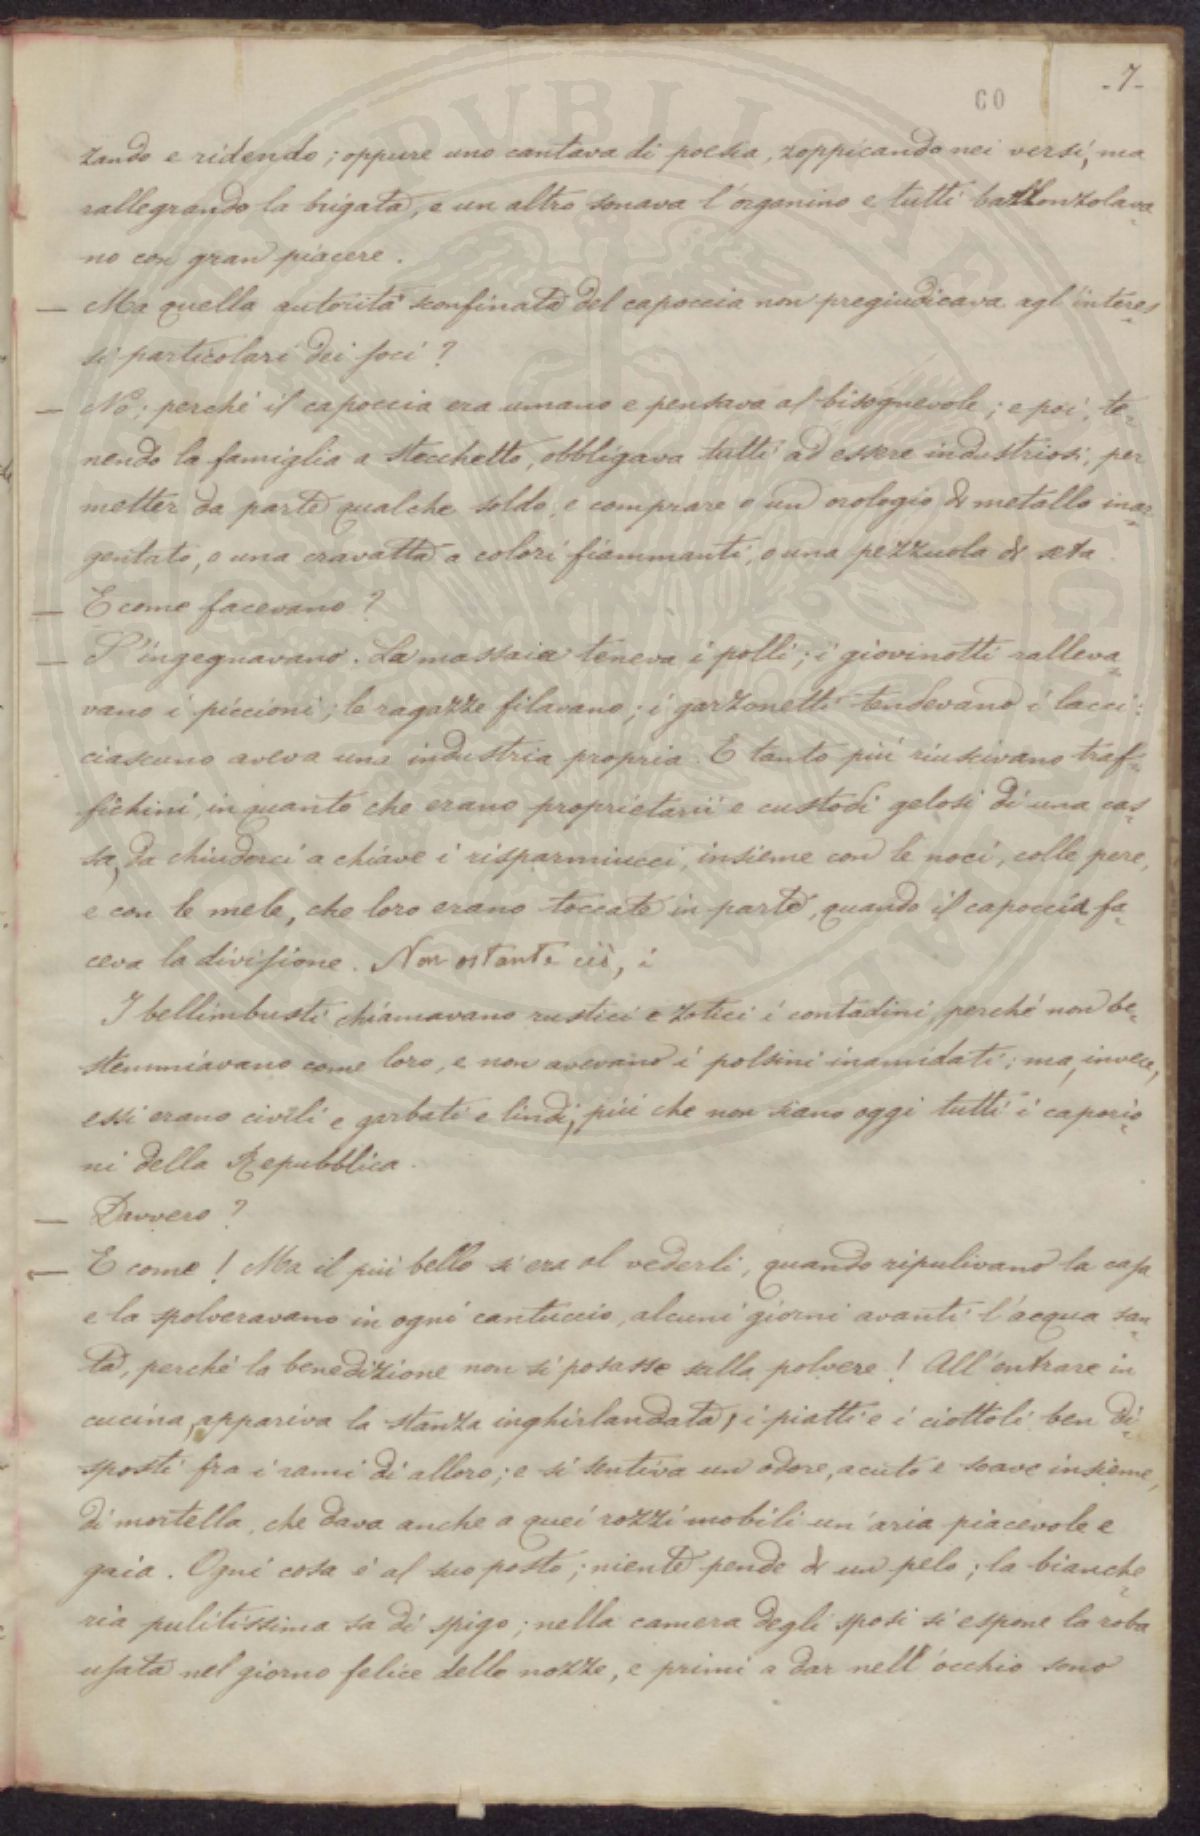 -7-
60
zando e ridendo; oppure uno cantava di poesia, zoppicando nei versi, ma
rallegrando la brigata, e un altro sonava l'organino e tutti ballonzolava-
no con gran piacere.
— Ma quella autorità sconfinata del capoccia non pregiudicava agl'interes-
si particolari dei soci?
— No; perché il capoccia era umano e pensava al bisognevole; e poi, te-
nendo la famiglia a stecchetto, obbligava tutti ad essere industriosi, per
metter da parte qualche soldo, e comprare o un orologio di metallo inar-
gentato, o una cravatta a colori fiammanti, o una pezzuola di seta.
— E come facevano?
— S'ingegnavano. La massaia teneva i polli; i giovinotti ralleva-
vano i piccioni; le ragazze filavano; i garzonetti tendevano i lacci:
ciascuno aveva una industria propria. E tanto più riuscivano traf-
fichini, in quanto che erano proprietarii e custodi gelosi di una cas-
sa, da chiuderci a chiave i risparmiucci, insieme con le noci, colle pere,
e con le mele, che loro erano toccate in parte, quando il capoccia fa-
ceva la divisione. Non ostante ciò, i
I bellimbusti chiamavano rustici e zotici i contadini, perché non be-
stemmiavano come loro, e non avevano i polsini inamidati; ma, invece,
essi erano civili e garbati e lindi, più che non siano oggi tutti i caporio-
ni della Repubblica.
— Davvero?
— E come! Ma il più bello si era al vederli, quando ripulivano la casa
e la spolveravano in ogni cantuccio, alcuni giorni avanti l'acqua san-
ta, perché la benedizione non si posasse sulla polvere! All'entrare in
cucina, appariva la stanza inghirlandata, i piatti e i ciottoli ben di-
sposti fra i rami di alloro; e si sentiva un odore, acuto e soave insieme,
di mortella, che dava anche a quei rozzi mobili un'aria piacevole e
gaia. Ogni cosa è al suo posto; niente pende di un pelo; la bianche-
ria pulitissima sa di spigo; nella camera degli sposi si espone la roba
usata nel giorno felice delle nozze, e primi a dar nell'occhio sono